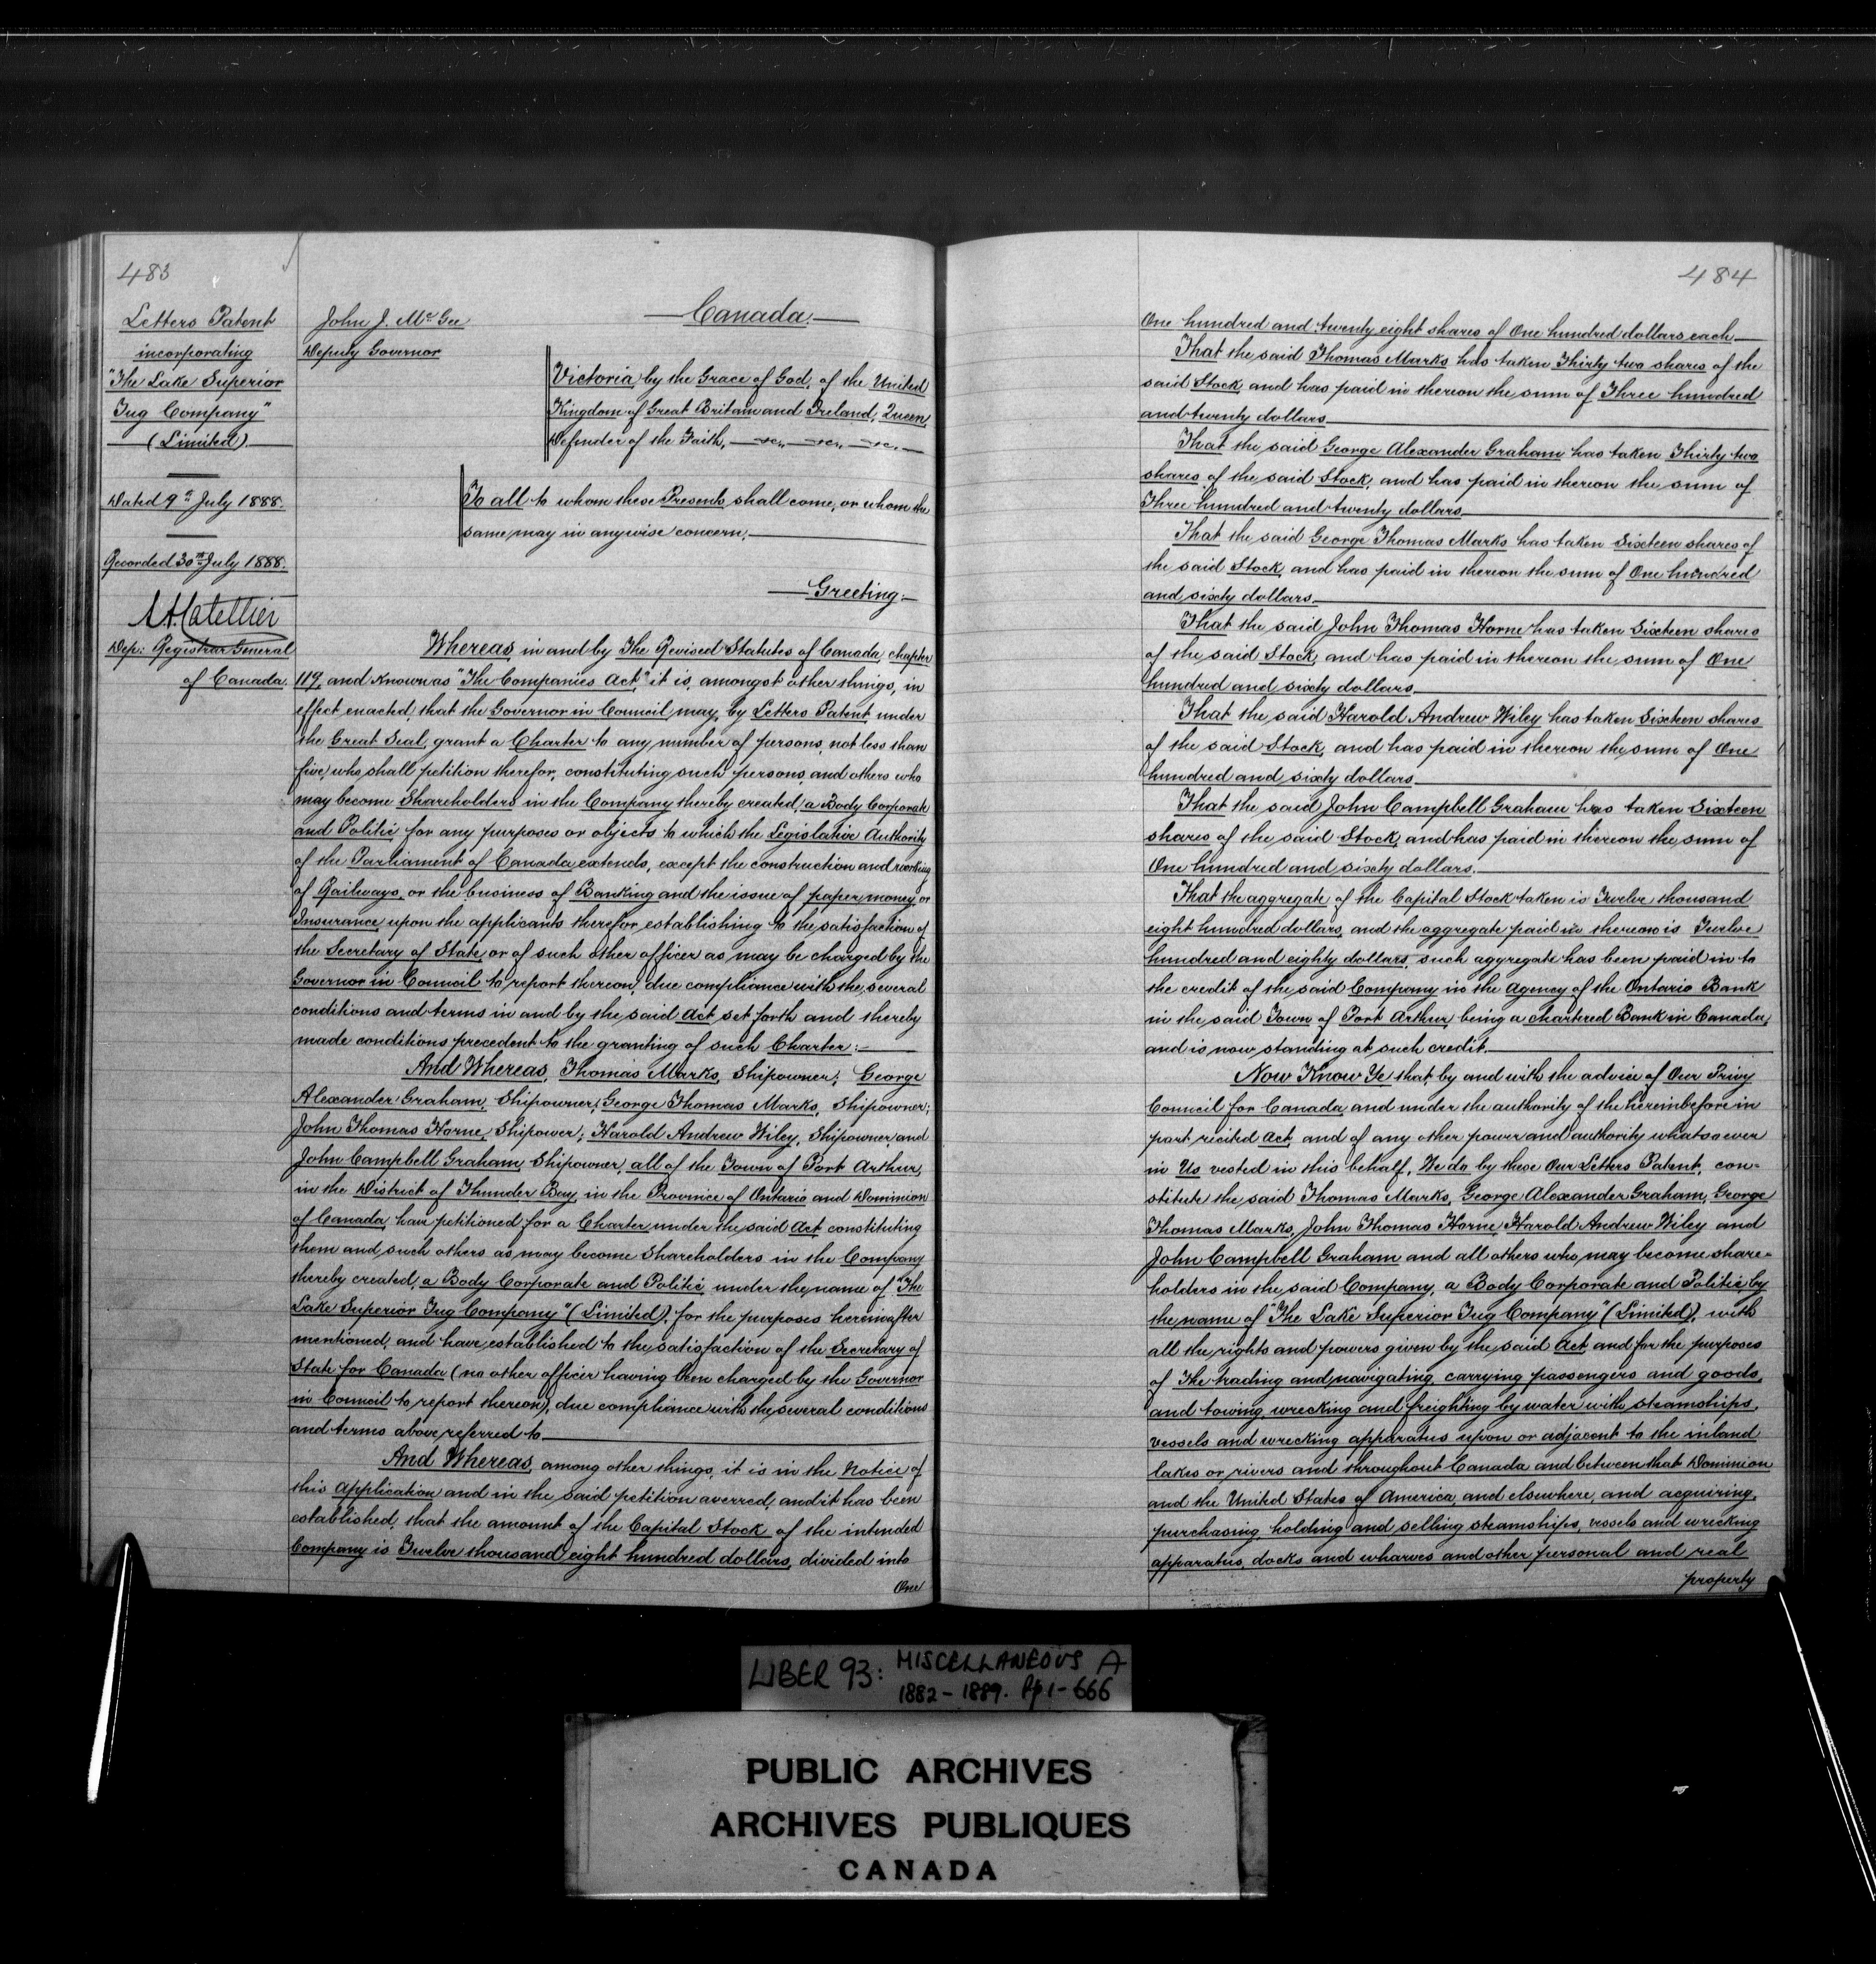 483
Letters Patent
incorporating
"The Lake Superior
Tug Company"
(Limited)
Dated 9th July 1888.
Recorded 30th July 1888.
Dep: Registrar General
of Canada.
John J. McGee
Deputy Governor
Canada.
Victoria by the Grace of God, of the United
Kingdom of Great Britain and Ireland, Queen,
Defender of the Faith, &c., &c., &c.
To all to whom these Presents shall come, or whom the
same may in anywise concern,
Greeting:
Whereas in and by The Revised Statutes of Canada, chapter
119, and known as "The Companies Act," it is, amongst other things, in
effect enacted, that the Governor in Council may, by Letters Patent, under
the Great Seal, grant a Charter to any number of persons, not less than
five, who shall petition therefor, constituting such persons, and others who
may become Shareholders in the Company thereby created, a Body Corporate
and Politic for any purposes or objects to which the Legislative Authority
of the Parliament of Canada extends, except the construction and working
of Railways, or the business of Banking and the issue of paper money or
Insurance upon the applicants therefor, establishing to the satisfaction of
the Secretary of State or of such other officer as may be charged by the
Governor in Council to report thereon, due compliance with the several
conditions and terms in and by the said Act set forth and thereby
made conditions precedent to the granting of such Charter:
And Whereas, Thomas Marks, Shipowner; George
Alexander Graham, Shipowner; George Thomas Marks, Shipowner;
John Thomas Horne, Shipower; Harold Andrew Wiley, Shipowner and
John Campbell Graham, Shipowner, all of the Town of Port Arthur,
in the District of Thunder Bay, in the Province of Ontario and Dominion
of Canada, have petitioned for a Charter under the said Act constituting
them and such others as may become Shareholders in the Company
thereby created, a Body Corporate and Politic, under the name of "The
Lake Superior Tug Company" (Limited), for the purposes hereinafter
mentioned, and have established to the satisfaction of the Secretary of
State for Canada (no other officer having been charged by the Governor
in Council to report thereon), due compliance with the several conditions
and terms above referred to
And Whereas, among other things, it is in the Notice of
this application and in the said petition averred, and it has been
established, that the amount of the Capital Stock of the intended
Company is Twelve thousand eight hundred dollars, divided into
One
484
One hundred and twenty eight shares of One hundred dollars each
That the said Thomas Marks has taken Thirty two shares of the
said Stock, and has paid in thereon the sum of Three hundred
and twenty dollars
That the said George Alexander Graham has taken Thirty two
shares of the said Stock, and has paid in thereon the sum of
Three hundred and twenty dollars
That the said George Thomas Marks has taken Sixteen shares of
the said Stock, and has paid in thereon the sum of One hundred
and sixty dollars.
That the said John Thomas Horne has taken Sixteen shares
of the said Stock, and has paid in thereon the sum of One
hundred and sixty dollars
That the said Harold Andrew Wiley has taken Sixteen shares
of the said Stock, and has paid in thereon the sum of One
hundred and sixty dollars
That the said John Campbell Graham has taken Sixteen
shares of the said Stock, and has paid in thereon the sum of
One hundred and sixty dollars.
That the aggregate of the Capital Stock taken is Twelve thousand
eight hundred dollars, and the aggregate paid in thereon is Twelve
hundred and eighty dollars, such aggregate has been paid in to
the credit of the said Company in the Agency of the Ontario Bank
in the said Town of Port Arthur, being a chartered Bank in Canada,
and is now standing at such credit.
Now Know Ye that, by and with the advice of Our Privy
Council for Canada and under the authority of the hereinbefore in
part recited Act, and of any other power and authority whatsoever
in Us vested in this behalf, We do by these Our Letters Patent, con-
stitute the said Thomas Marks, George Alexander Graham, George
Thomas Marks, John Thomas Horne, Harold Andrew Wiley and
John Campbell Graham and all others who may become share-
holders in the said Company, a Body Corporate and Politic by
the name of "The Lake Superior Tug Company" (Limited), with
all the rights and powers given by the said Act, and for the purposes
of The trading and navigating, carrying passengers and goods,
and towing, wrecking and freighting by water with steamships,
vessels and wrecking apparatus upon or adjacent to the inland
lakes or rivers and throughout Canada and between that Dominion
and the United States of America, and elsewhere, and acquiring,
purchasing, holding and selling steamships, vessels and wrecking
apparatus, docks and wharves and other personal and real
property
LIBER 93: MISCELLANEOUS A
1882-1889. Pp 1-666
PUBLIC ARCHIVES
ARCHIVES PUBLIQUES
CANADA